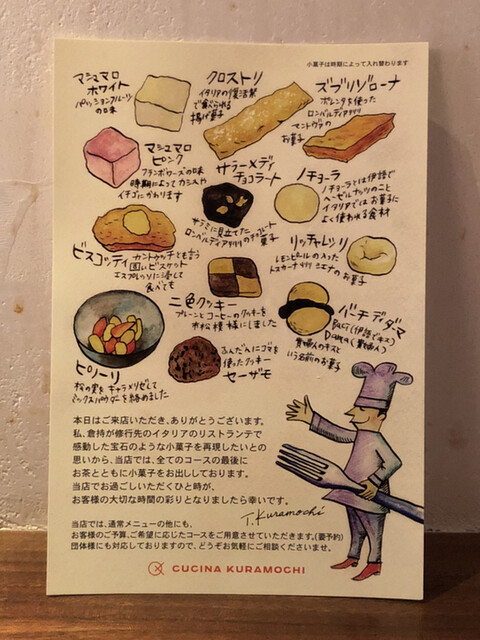 小菓子は時期によって入れ替わります
マシュマロ
ホワイト
パッションフルーツ
の味
クロストリ
イタリアの復活祭
で食べられる
揚げ菓子
ズブリゾローナ
ポレンタを使った
ロンバルディアの
マントヴァの
お菓子
マシュマロ
ピンク
フランボワーズの味
時期によってカシスや
イチゴにかわります
サラーメディ
チョコラート
サラミに見立てた
ロンバルディアのチョコレート
菓子
ノチョーラ
ノチョーラとは伊語で
ヘーゼルナッツのこと
イタリアではお菓子に
よく使われる食材
ビスコッティ
カントゥッチとも言う
固いビスケット
エスプレッソに浸して
食べても
リッチャレッリ
レモンピールの入った
トスカーナ シエナのお菓子
二色クッキー
プレーンとコーヒーのクッキーを
市松模様にしました
バーチディダーマ
Baci(伊語でキス)
Dama(貴婦人)
貴婦人のキスと
いう名前のお菓子
ピノーリ
松の実をキャラメリゼして
ミックスパウダーを絡めました
ふんだんにゴマを
使ったクッキー
セーザモ
本日はご来店いただき、ありがとうございます。
私、倉持が修行先のイタリアのリストランテで
感動した宝石のような小菓子を再現したいとの
思いから、当店では、全てのコースの最後に
お茶とともに小菓子をお出ししております。
当店でお過ごしいただくひと時が、
お客様の大切な時間の彩りとなりましたら幸いです。
T. Kuramochi
当店では、通常メニューの他にも、
お客様のご予算、ご希望に応じたコースをご用意させていただきます。(要予約)
団体様にも対応しておりますので、どうぞお気軽にご相談くださいませ。
CUCINA KURAMOCHI